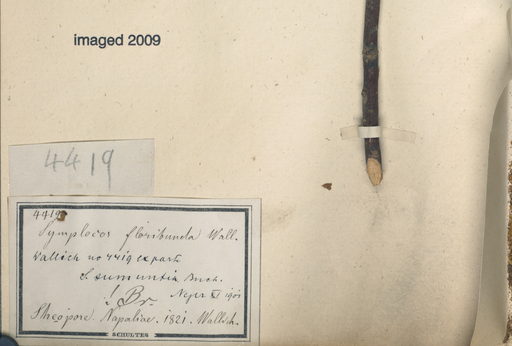 imaged 2009
4419
4419
Symplocos floribunda Wall.
Wallich no 4419 ex parte
S. sumuntia Buch.
! Br.
1901
Sheopore Napaliae. 1821. Wallich.
SCHULTES